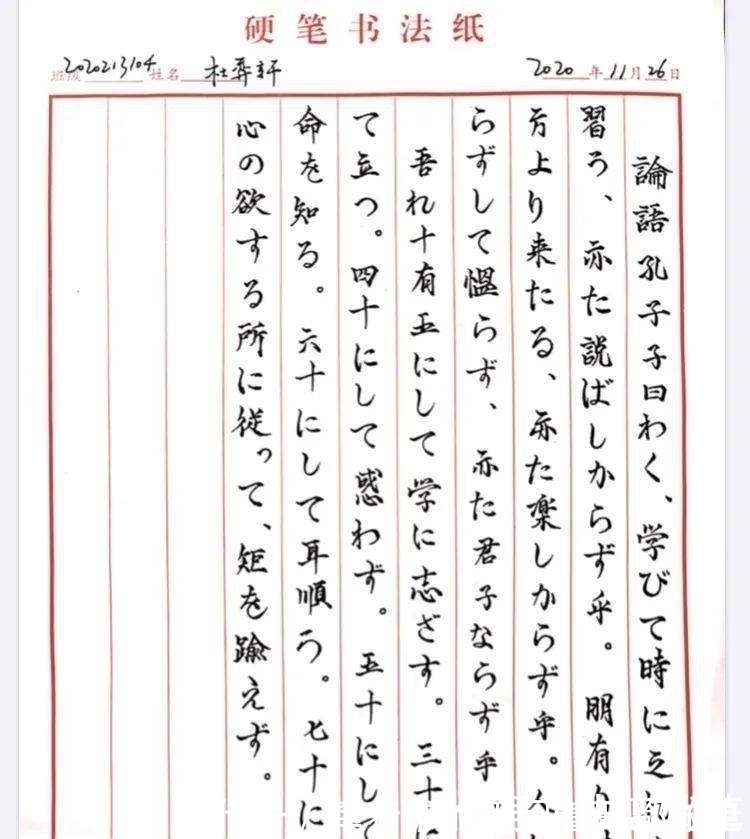 硬笔书法纸
班级 2020213104 姓名 杜莽轩 2020年11月26日
論語孔子子曰わく、学びて時に之
習う、亦た説ばしからず乎。朋有り
方より来たる、亦た楽しからず乎。
らずして慍らず、亦た君子ならず乎
吾れ十有五にして学に志ざす。三十に
て立つ。四十にして惑わず。五十にして
命を知る。六十にして耳順う。七十に
心の欲する所に従って、矩を踰えず。